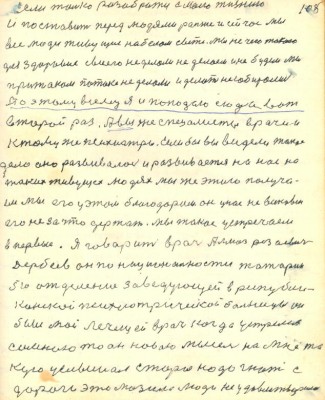 108
Если только разобрать с моею жизнью
И поставит перед людями ранше и сичас мы
все люди живущие на белом свете. Мы не чего такого
для здоровие своего не делали не делаем и не будем мы
при таком потоке не делали и делать не собираемся
По этому вижу я и попадаю сюда вот
второй раз. А вы же специалисты врачи и
к тому же психиатры. Если бы вы видели такое
дело оно развивалос и развивается на нас на
таких живущие людях мы же этого получа-
ем мы его у этом благодарим он у нас не виноват
его не за что держат. Мы такое устречаем
в первые. Я говарит врач Алмаз
Дербеев он по национальности татарин
5го отделения Заведующей в републи-
канской психиатрической больницы он
был мой лечущей врач когда устретил
со мною то он новою мысел на мне та
кую услышал старою надо гнат с
дороги это мозгел люди не удовлетворено